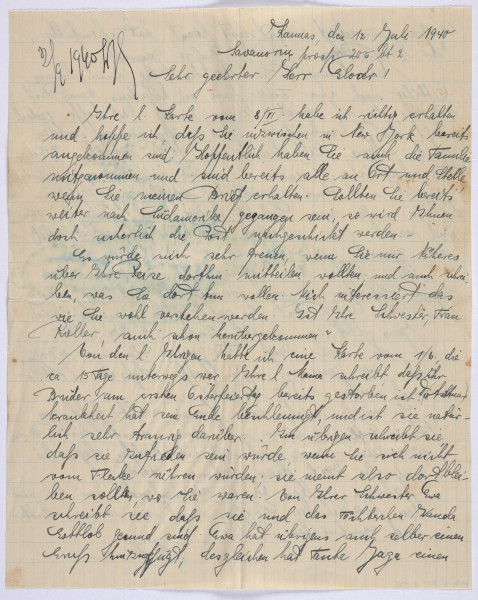 Kaunas, den 12. Juli 1940
Savanoriu prosp. 205 bt 2
Sehr geehrter Herr !
Ihre l. Karte vom habe ich richtig erhalten
und hoffe ich, daß Sie inzwischen in New York bereits
angekommen sind. Hoffentlich haben Sie auch die Familie
mitgenommen und sind bereits alle an Ort und Stelle
wenn Sie meinen Brief erhalten. Sollten Sie bereits
weiter nach Südamerika gegangen sein, so wird Ihnen
doch sicherlich die Post nachgeschickt werden.
Es würde mich sehr freuen, wenn Sie mir Näheres
über Ihre Reise dorthin mitteilen wollten und auch schrei-
ben, was Sie dort tun wollen. Mich interessiert das
wie Sie wohl verstehen werden. Ist Ihre Schwester, Frau
Keller, auch schon herübergekommen?
Von den l. Ihrigen hatte ich eine Karte vom 1/6. die
ca 15 Tage unterwegs war. Ihre l. Mama schreibt, daß ihr
Bruder am ersten Osterfeiertag bereits gestorben ist.
krankheit hat sein Ende beschleunigt, und ist sie natür-
lich sehr traurig darüber. Im übrigen schreibt sie,
daß sie zufrieden sein würde wenn Sie sich nicht
vom Flecke rühren würden; sie meint also dort blei-
ben sollen, wo Sie waren. Von Ihrer Schwester Ewa
schreibt sie daß sie und das Töchterchen Wanda
Gottlob gesund sind. Ewa hat übrigens auch selber einen
Gruß hinzugefügt, desgleichen hat Tante einen